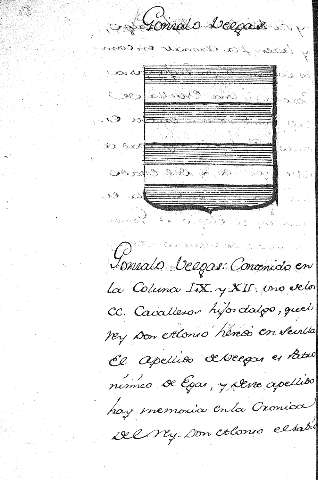 Gonzalo Veegas.
Gonzalo Veegas: Contenido en
la Coluna IX. y XII. uno de los
CC. Cavalleros hijosdalgo, que el
rey Don Alonso heredó en Sevilla
El Apellido de Veegas es Patro
nimico de Egas, y deste apellido
hay memoria en la Cronica
del rey Don Alonso el sabio